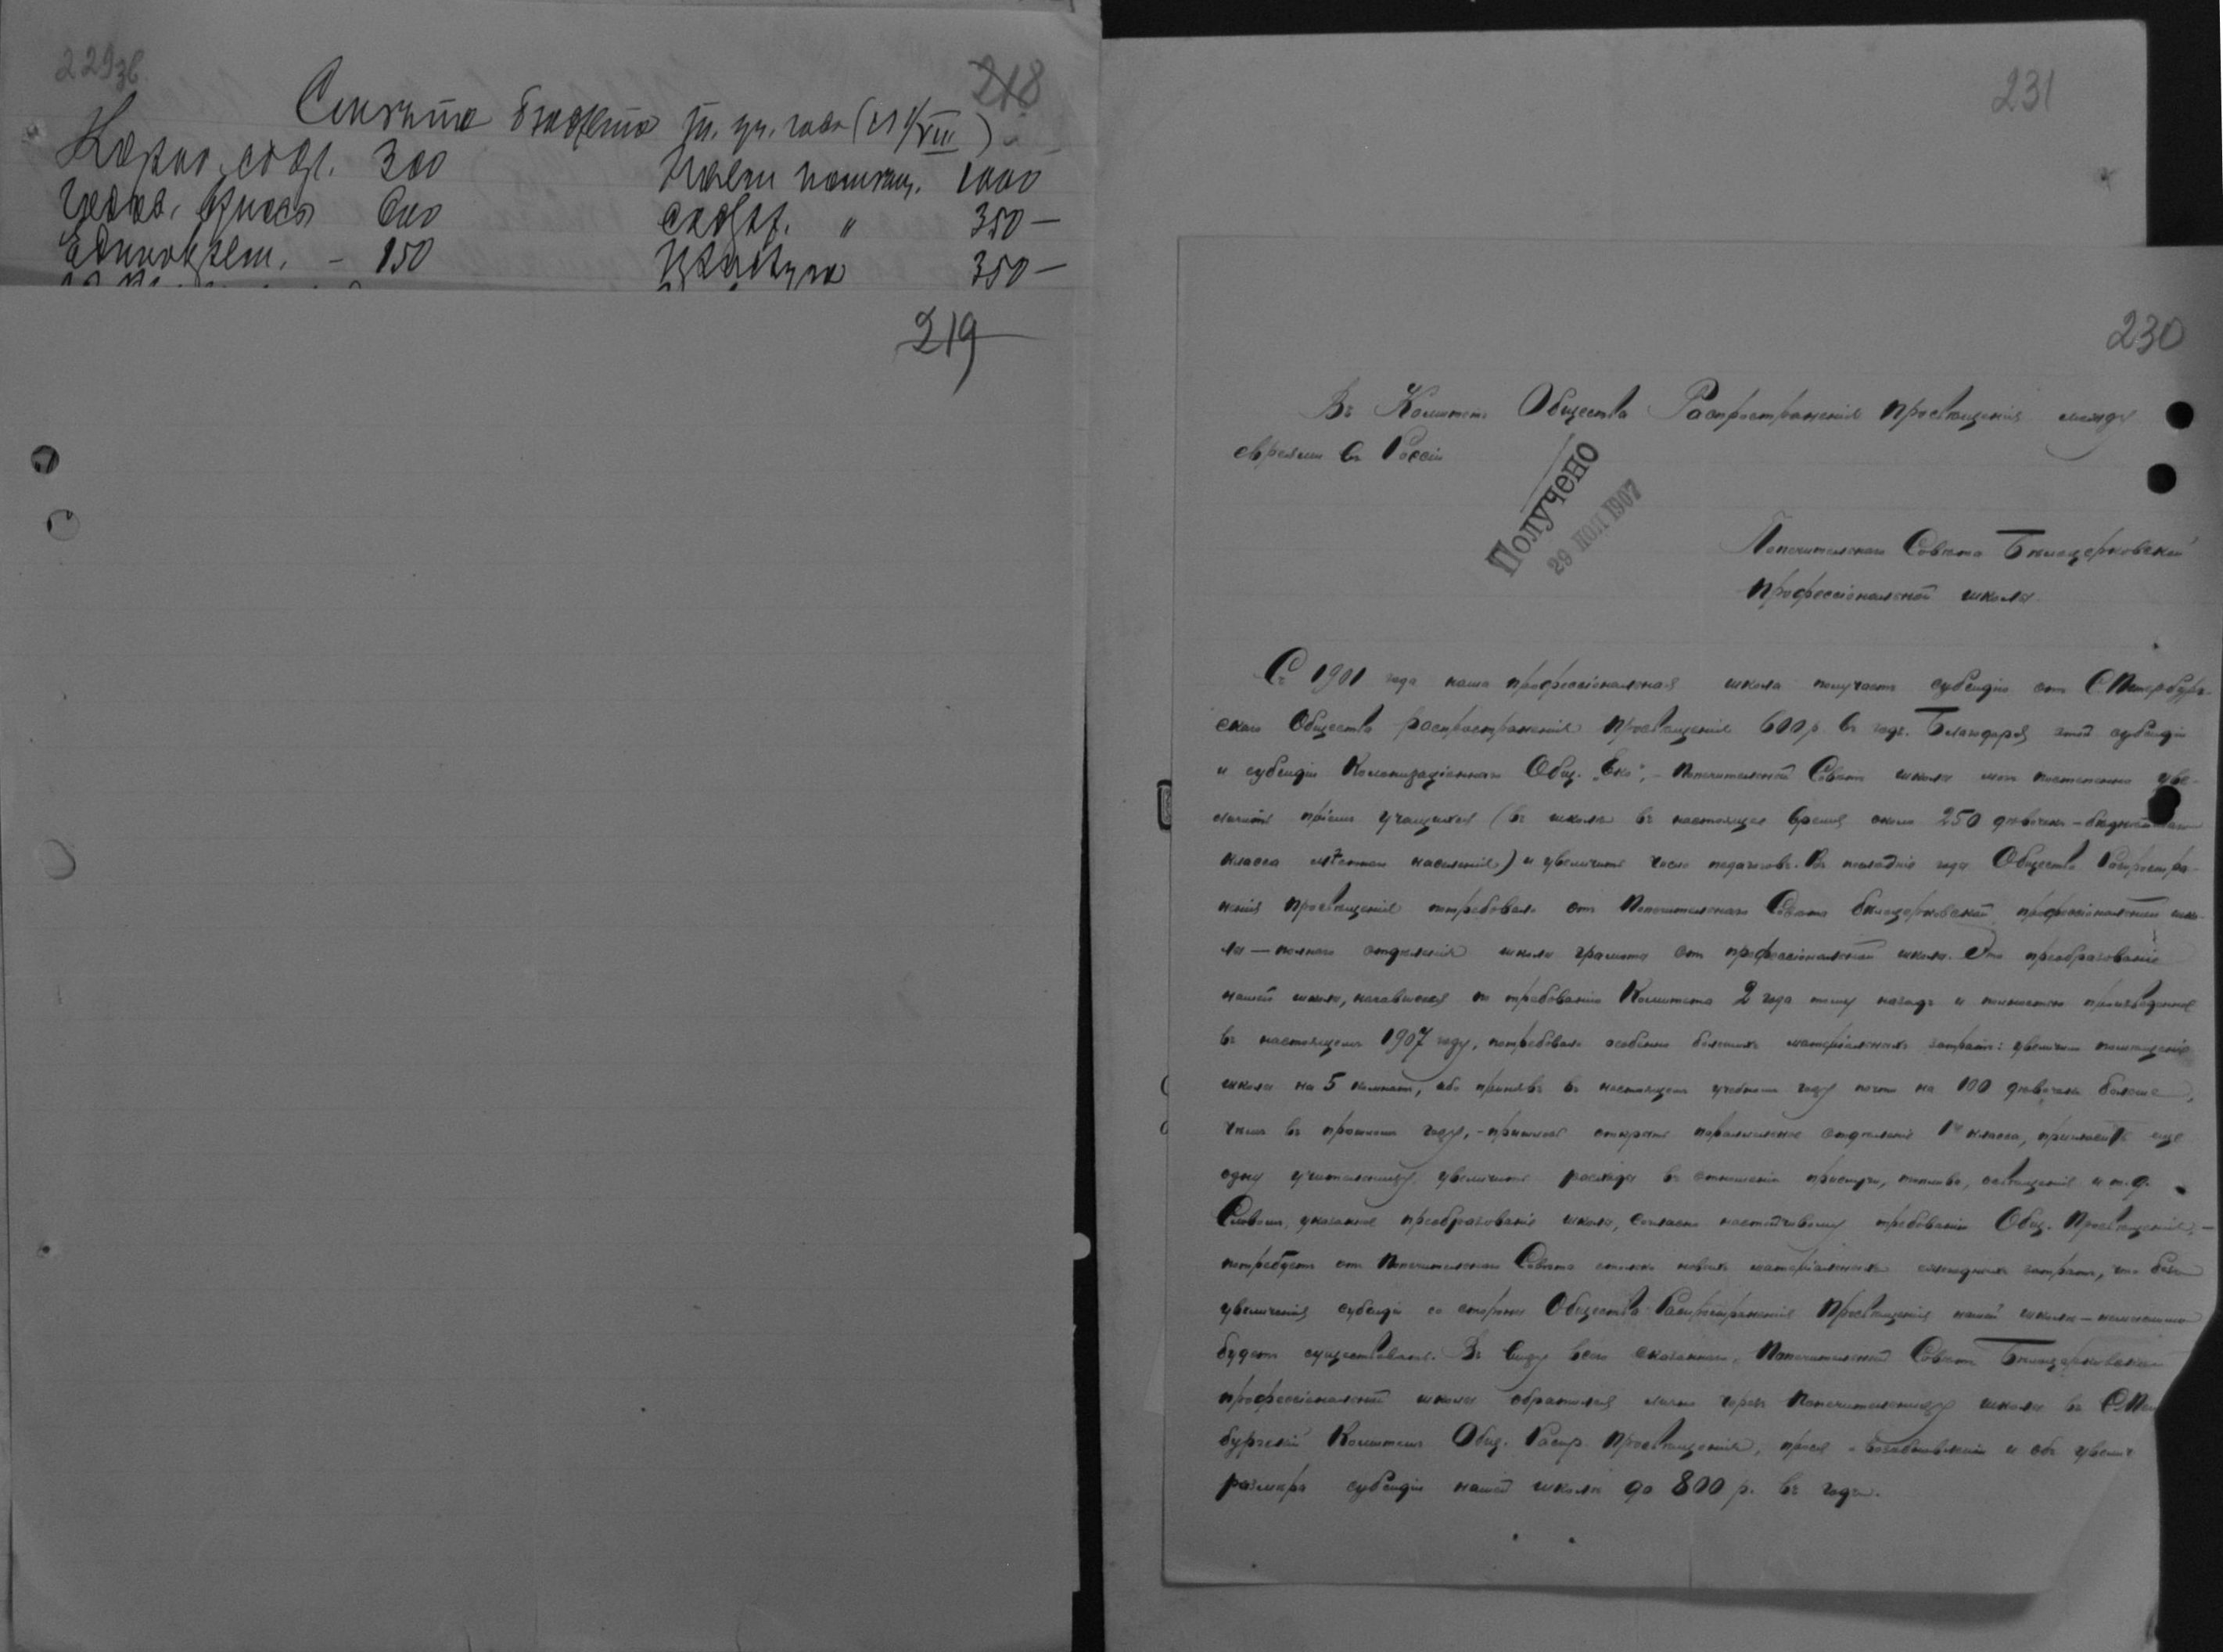 229об.
218
Смѣта бюджета т. уч. года (съ 1/VIII)
Короб. сбор. 300 Наемъ помѣщ. 1000
600 " 350 —
Единоврем. – 150 350 —
219
231
230
Въ Комитетъ Общества Распространенія просвѣщенія между
евреями въ Россіи
Получено
29 ІЮЛ 1907
Попечительнаго Совѣта Бѣлоцерковской
профессіональной школы
Съ 1901 года наша профессіональная школа получаетъ субсидію отъ С.Петербург-
скаго Общества распространенія просвѣщенія 600 р. въ годъ. Благодаря этой субсидіи
и субсидіи Колонизаціоннаго Общ. „Еко“, – Попечительный Совѣтъ школы могъ постепенно уве-
личить пріемъ учащихся (въ школѣ въ настоящее время около 250 дѣвочекъ – бѣднѣйшаго
класса мѣстнаго населенія) и увеличить число педагоговъ. Въ послѣдніе года Общество Распростра-
ненія просвѣщенія потребовало отъ Попечительнаго Совѣта бѣлоцерковской профессіональной шко-
лы — полнаго отдѣленія школы грамоты отъ профессіональной школы. Это преобразованіе
нашей школы, начавшееся по требованію Комитета 2 года тому назадъ и полностью произведенное
въ настоящемъ 1907 году, потребовало особенно большихъ матеріальныхъ затратъ: увеличили помѣщеніе
школы на 5 комнатъ, ибо принявъ въ настоящемъ учебномъ году почти на 100 дѣвочекъ больше,
чѣмъ въ прошломъ году, – пришлось открыть параллельное отдѣленіе 1го класса, пригласить еще
одну учительницу, увеличить расходы въ отношеніи прислуги, топлива, освѣщенія и т.д.
Словомъ, указанное преобразованіе школы, согласно настойчивому требованію Общ. Просвѣщенія, –
потребуетъ отъ Попечительнаго Совѣта столько новыхъ матеріальныхъ ежегодныхъ затратъ, что безъ
увеличенія субсидіи со стороны Общества Распространенія Просвѣщенія нашей школы – немыслимо
будетъ существовать. Въ виду всего сказаннаго, Попечительный Совѣтъ Бѣлоцерковской
профессіональной школы обратился лично черезъ Попечительницу школы въ С.Пет
бургскій Комитетъ Общ. Распр. Просвѣщенія, прося о возобновленіи и объ увелич
размѣра субсидіи нашей школѣ до 800 р. въ годъ.